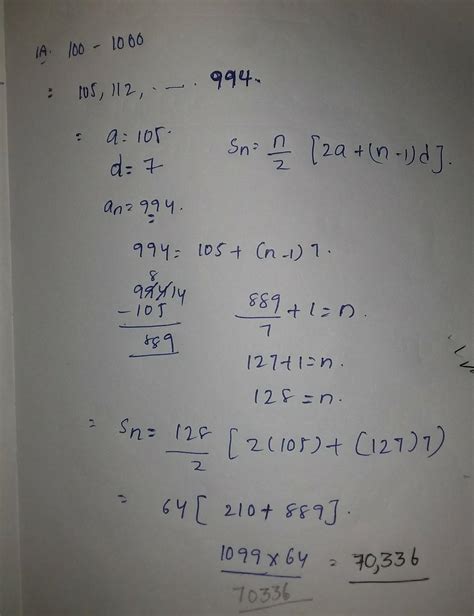 1A. 100 - 1000
: 105, 112, ..... 994.
= a = 105.
d = 7
Sn = n/2 [2a + (n-1)d].
an = 994.
994 = 105 + (n-1) 7.
8
99414
- 105
889
889/7 + 1 = n.
127+1 = n.
128 = n.
= Sn = 128/2 [2(105) + (127)7)
= 64 [ 210 + 889].
1099 × 64 = 70,336
70336